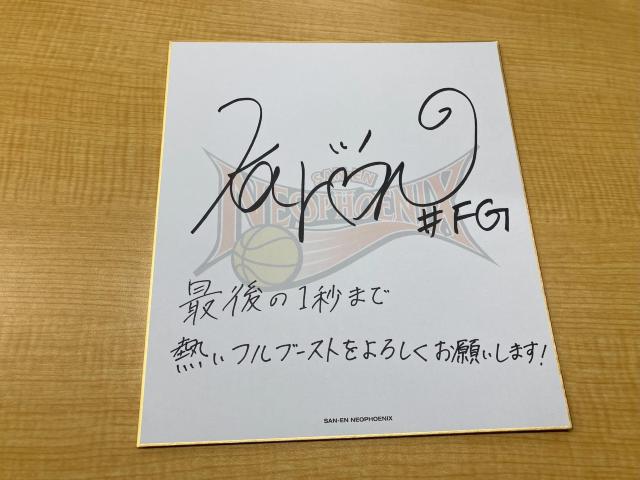 SAN-EN
NEOPHOENIX
#FG
最後の1秒まで
熱いフルブーストをよろしくお願いします!
SAN-EN NEOPHOENIX